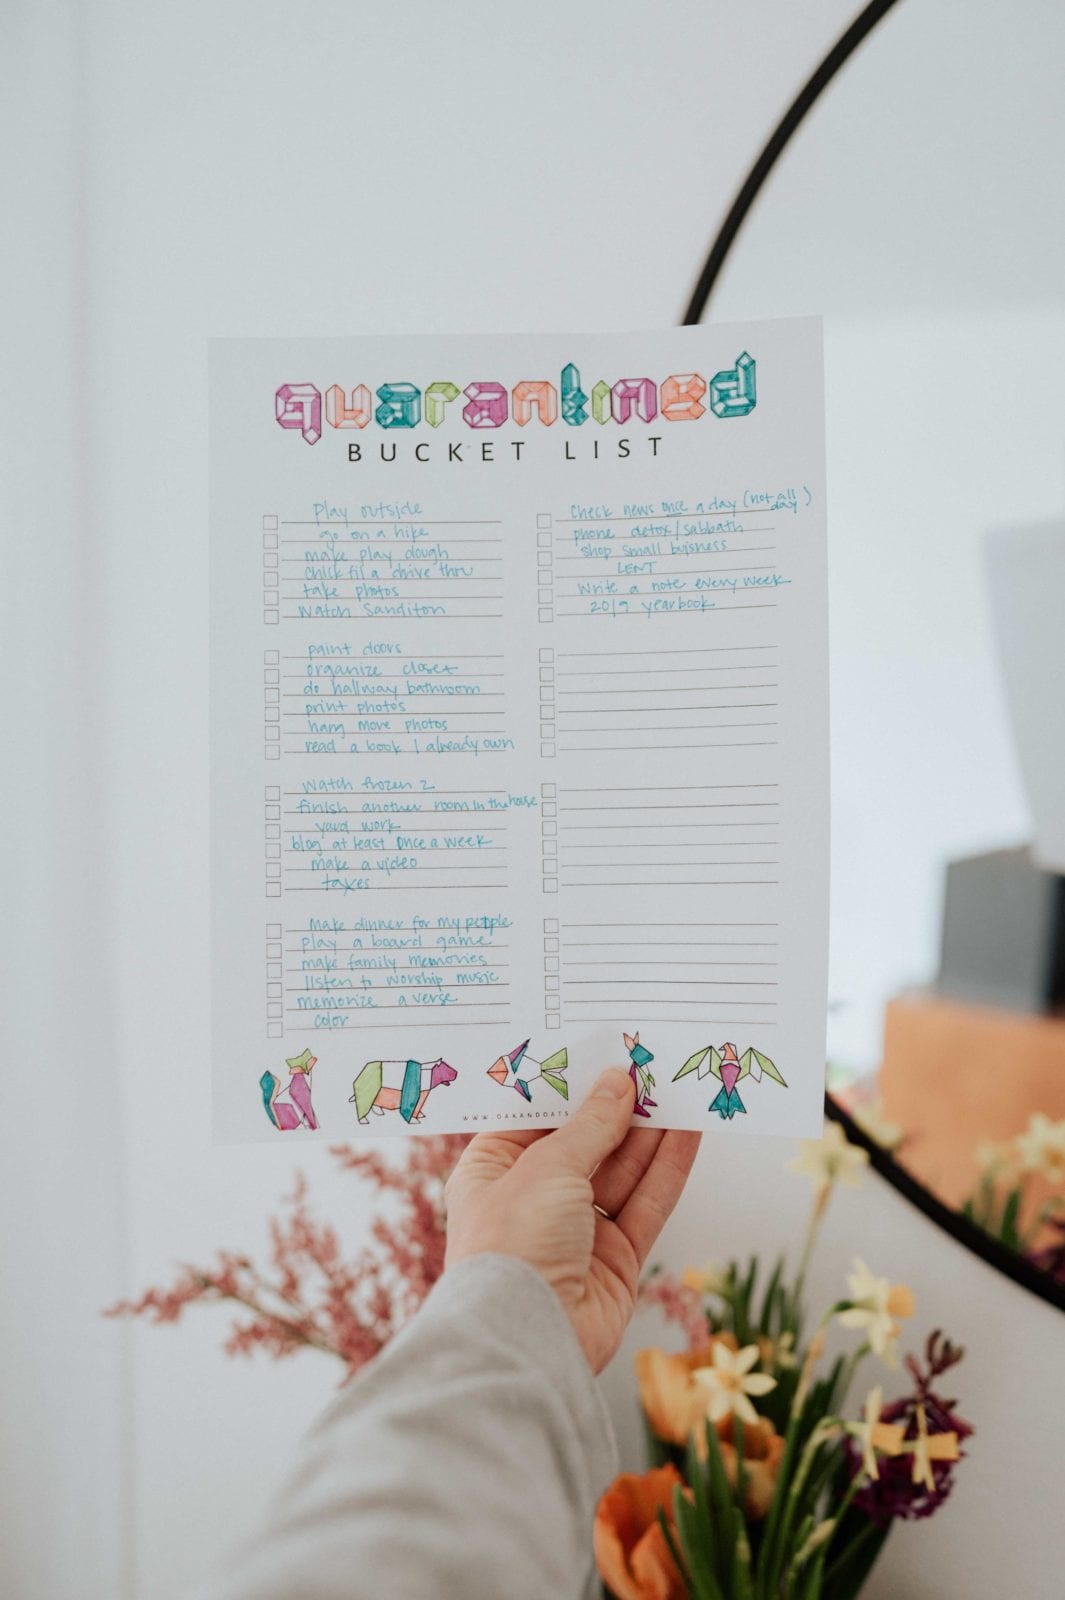 quarantined
BUCKET LIST
Play outside
go on a hike
make play dough
chick fil a drive thru
take photos
watch Sanditon
paint doors
organize closet
do hallway bathroom
print photos
hang more photos
read a book I already own
watch frozen 2
finish another room in the house
yard work
blog at least once a week
make a video
taxes
Make dinner for my people
play a board game
make family memories
listen to worship music
memorize a verse
color
Check news once a day (not all day)
phone detox/sabbath
shop small buisness
LENT
Write a note every week
2019 yearbook
WWW.OAKANDOATS